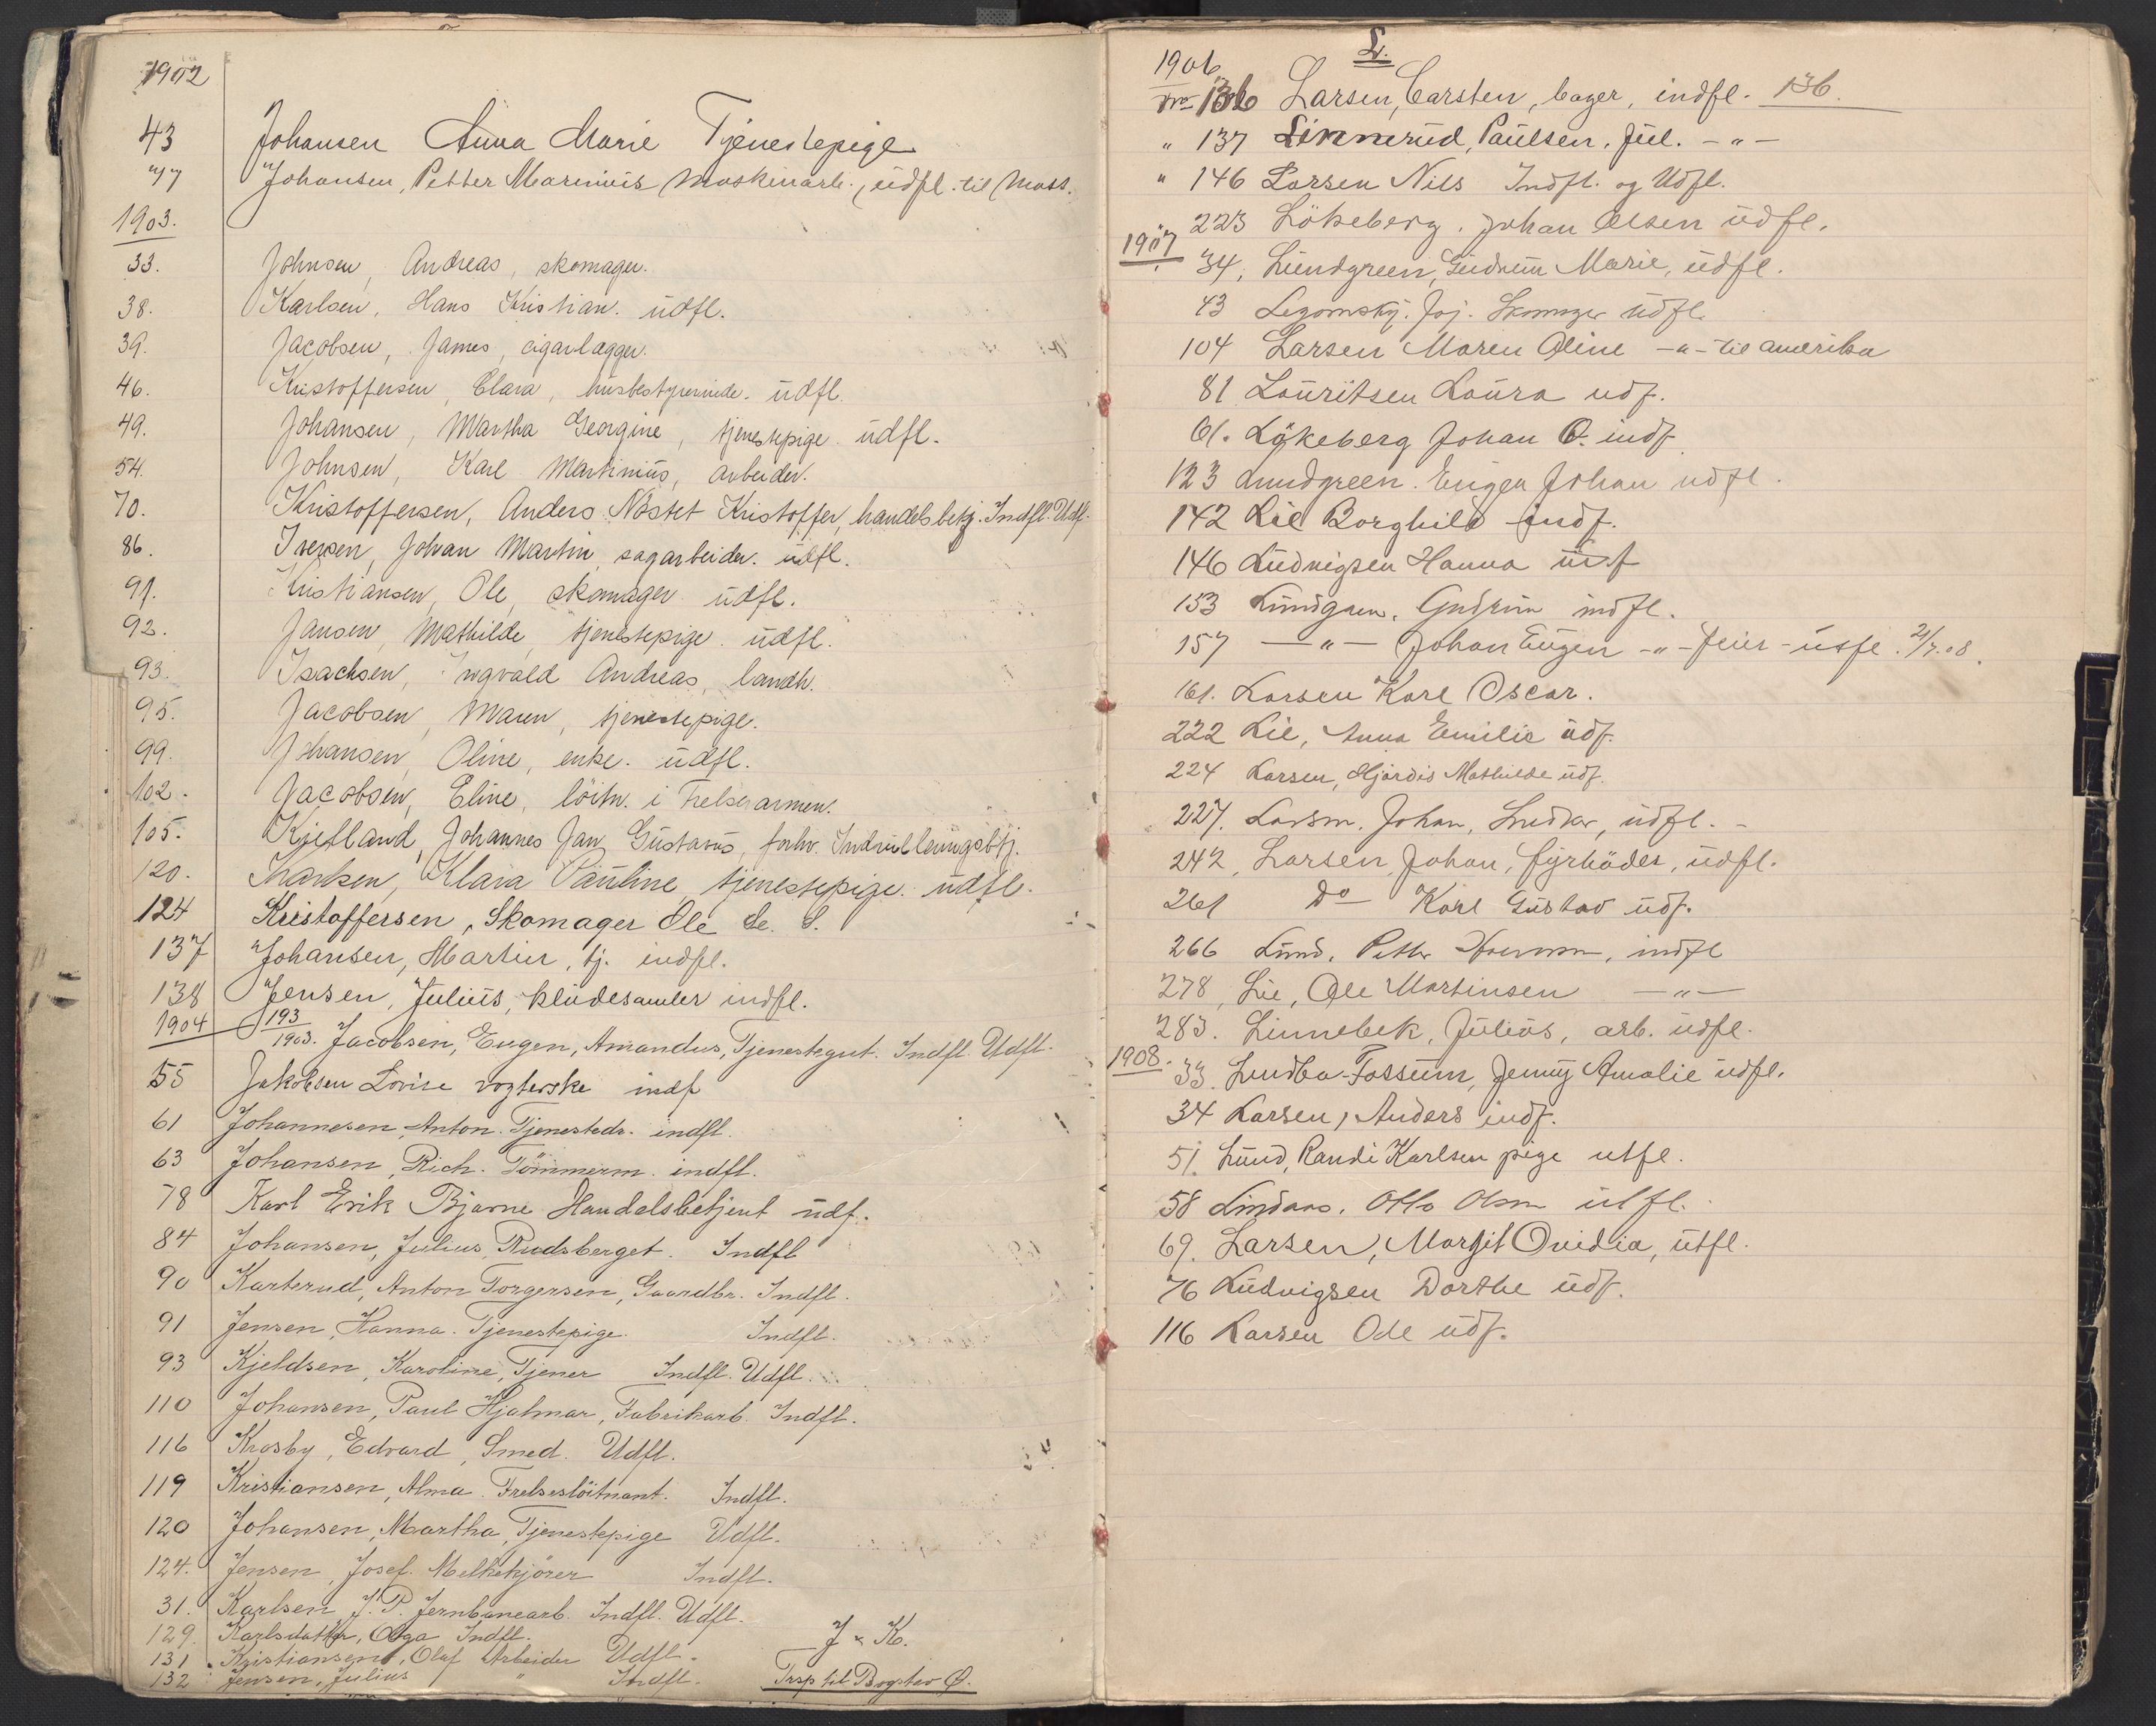 1902
43 Johansen Anna Marie Tjenestepige
47 Johansen, Petter Marinius Maskinarb., üdfl. til Moss.
1903.
33. Johnsen, Andreas, skomager.
38. Karlsen, Hans Kristian. üdfl.
39. Jacobsen, James, cigarlægger.
46. Kristoffersen, Clara, husbestyrerinde. üdfl.
49. Johansen, Martha Georgine, tjenestepige üdfl.
54. Johnsen, Karl Martinius, arbeider.
70. Kristoffersen, Anders Nöstet Kristoffer, handelsbetj. Indfl. Udfl.
86. Iversen, Johan Martin, sagarbeider. üdfl.
91. Kristiansen, Ole, skomager üdfl.
92. Jansen, Mathilde, tjenestepige. üdfl.
93. Isachsen, Ingvald Andreas, landh.
95. Jacobsen, Maren, tjenestepige.
99. Johansen, Oline, enke. üdfl.
102. Jacobsen, Eline, löitn. i Frelserarmen.
105. Kjelland, Johannes Jan Gustavus, forhv. Indrulleringsbtj.
120. Karlsen, Klara Pauline tjenestepige. üdfl.
124 Kristoffersen, Skomager Ole
137 Johansen, Martin, tj. indfl.
138 Jensen, Julius, kludesamler indfl.
1904 193/1903. Jacobsen, Eugen, Amandus, Tjenestegut. Indfl. Udfl.
55 Jakobsen Lovise vogterske indf
61 Johannesen, Anton. Tjenestedr. indfl.
63 Johansen, Rich. Tömmerm. indfl.
78 Karl Erik Bjarne Handelsbetjent üdf.
84 Johansen, Julius, Rudsberget. Indfl
90 Karterud, Anton Torgersen, Gaardbr. Indfl.
91 Jensen, Hanna. Tjenestepige. Indfl.
93 Kjeldsen, Karoline, Tjener Indfl. Udfl.
110 Johansen, Paul Hjalmar, Fabrikarb. Indfl.
116 Krosby, Edvard, Smed. Udfl.
119 Kristiansen, Alma. Frelseslöitnant. Indfl.
120 Johansen, Martha, Tjenestepige Udfl.
124. Jensen, Josef. Melkekjörer Indfl.
31. Karlsen, J. P. Jernbanearb. Indfl. Udfl.
129. Karlsdatter, Olga Indfl. J & K.
131. Kristiansen, Olaf Arbeider Udfl.
132 Jensen, Julius " Indfl. Trsp til Bogstav Ø.
L.
1906
No 136 Larsen, Carsten, bager, indfl. 136.
" 137 Linnerud, Paulsen, Jul. -"-
" 146 Larsen Nils Indfl. og Udfl.
" 223 Lökeberg, Johan Olsen üdfl.
1907 34, Lundgreen, Gudrun Marie, üdfl.
43 Legomsky. Jsj. Skomager üdfl.
104 Larsen Maren Oline -"- til amerika
81 Lauritsen Laura udf.
61. Lökeberg Johan O. indf.
123 Lundgreen. Eugen Johan udfl.
142 Lie Borghild indf.
146 Ludvigsen Hanna üdf
153 Lundgren. Gudrun indfl.
157 -"- Johan Eugen -"- feier - utfl. 21/7.08.
161. Larsen Karl Oscar.
222 Lie, Anna Emilie üdf.
224 Larsen, Hjördis Mathilde üdf.
227. Larsen, Johan, Snedker, üdfl. -
242, Larsen, Johan, fyrböder, üdfl.
261 Do Karl Gustav üdf.
266 Lund, Petter Herman, indfl
278, Lie, Ole Martinsen -"-
283. Linnebek, Julius, arb. üdfl.
1908. 33. Lundbo-Fossum, Jenny Amalie üdfl.
34 Larsen, Anders indf.
51. Lund, Randi Karlsen pige utfl.
58 Lindaas, Otto Olsen utfl.
69. Larsen, Margit Ovidia, ütfl.
76 Ludvigsen Dorthe üdf.
116 Larsen Ole üdf.